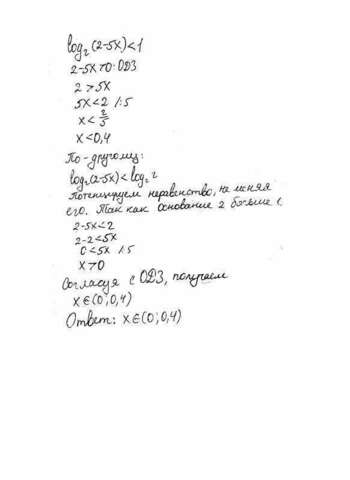 log₂(2-5x)<1
2-5x>0-ОДЗ
2>5x
5x<2 /:5
x<2/5
x<0,4
По-другому:
log₂(2-5x)<log₂2
Потенцируем неравенство, не меняя
его. Так как основание 2 больше 1
2-5x<2
2-2<5x
0<5x /:5
x>0
Согласуя с ОДЗ, получаем
x∈(0;0,4)
Ответ: x∈(0;0,4)